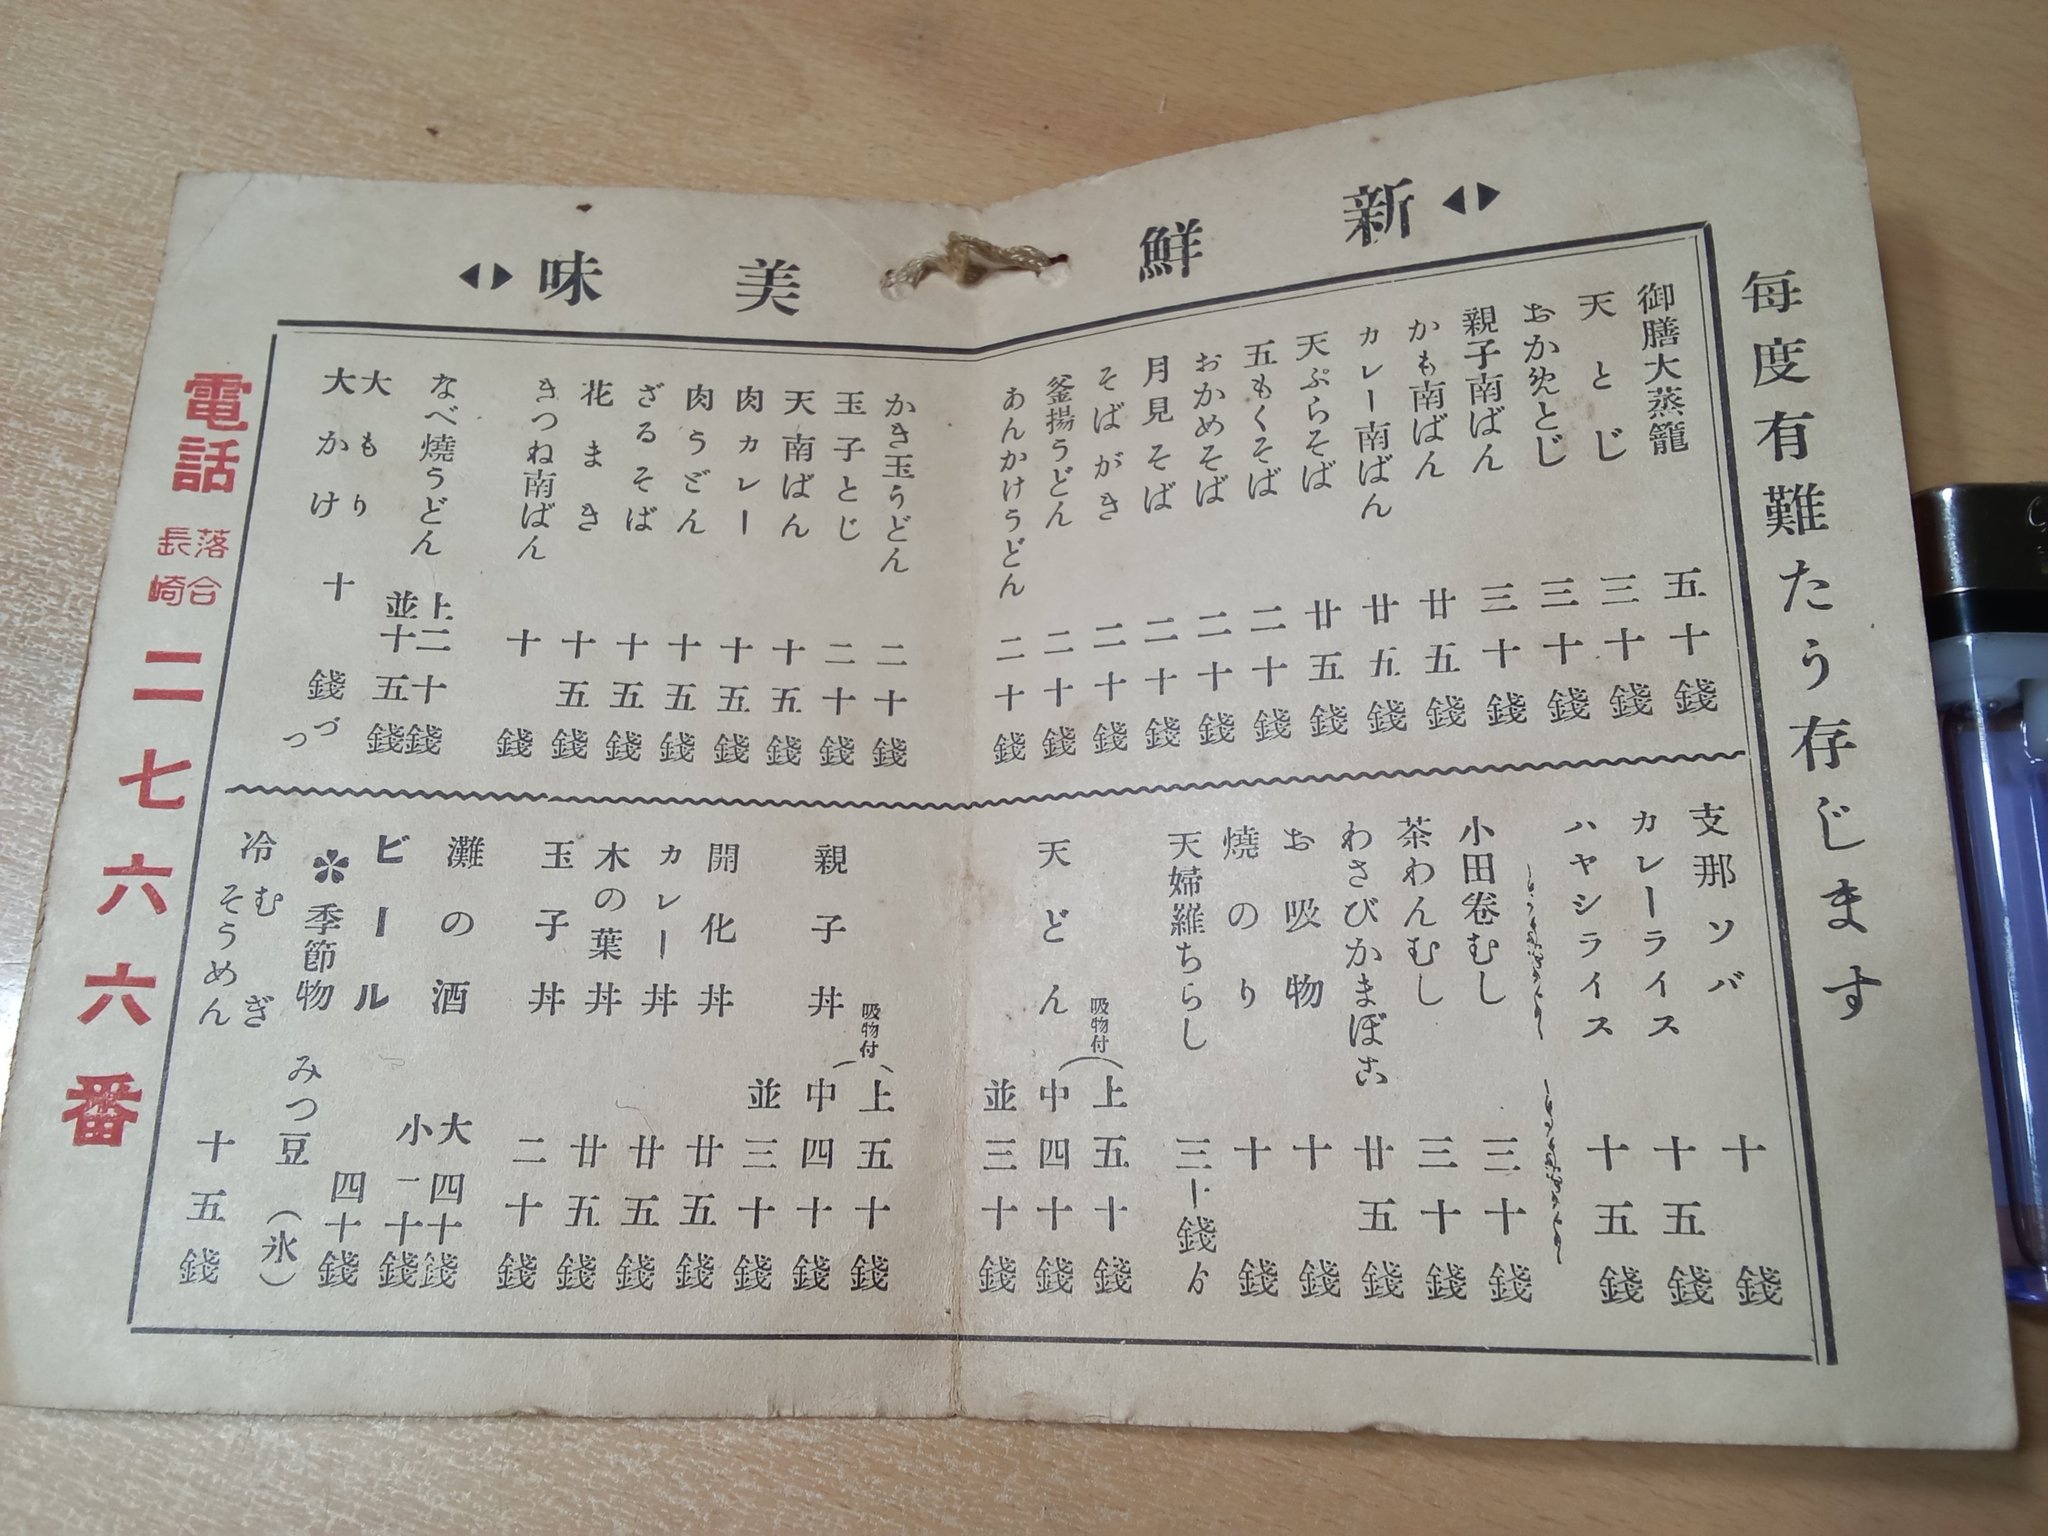 毎度有難たう存じます
新鮮美味
御膳大蒸籠 五十錢
天とじ 三十錢
おかめとじ 三十錢
親子南ばん 三十錢
かも南ばん 廿五錢
カレー南ばん 廿五錢
天ぷらそば 廿五錢
五もくそば 二十錢
おかめそば 二十錢
月見そば 二十錢
そばがき 二十錢
釜揚うどん 二十錢
あんかけうどん 二十錢
かき玉うどん 二十錢
玉子とじ 二十錢
天南ばん 十五錢
肉カレー 十五錢
肉うどん 十五錢
ざるそば 十五錢
花まき 十五錢
きつね南ばん 十錢
なべ燒うどん 上二十錢 並十五錢
大もり
大かけ 十錢づつ
支那ソバ 十錢
カレーライス 十五錢
ハヤシライス 十五錢
小田巻むし 三十錢
茶わんむし 三十錢
わさびかまぼこ 廿五錢
お吸物 十錢
燒のり 十錢
天婦羅ちらし 三十錢より
天どん 吸物付(上五十錢
中四十錢
並三十錢
親子丼 吸物付(上五十錢
中四十錢
並三十錢
開化丼 廿五錢
カレー丼 廿五錢
木の葉丼 廿五錢
玉子丼 二十錢
灘の酒 大四十錢 小一十錢
ビール 四十錢
季節物 みつ豆(氷)
冷むぎ
そうめん 十五錢
電話 落合長崎 二七六六番